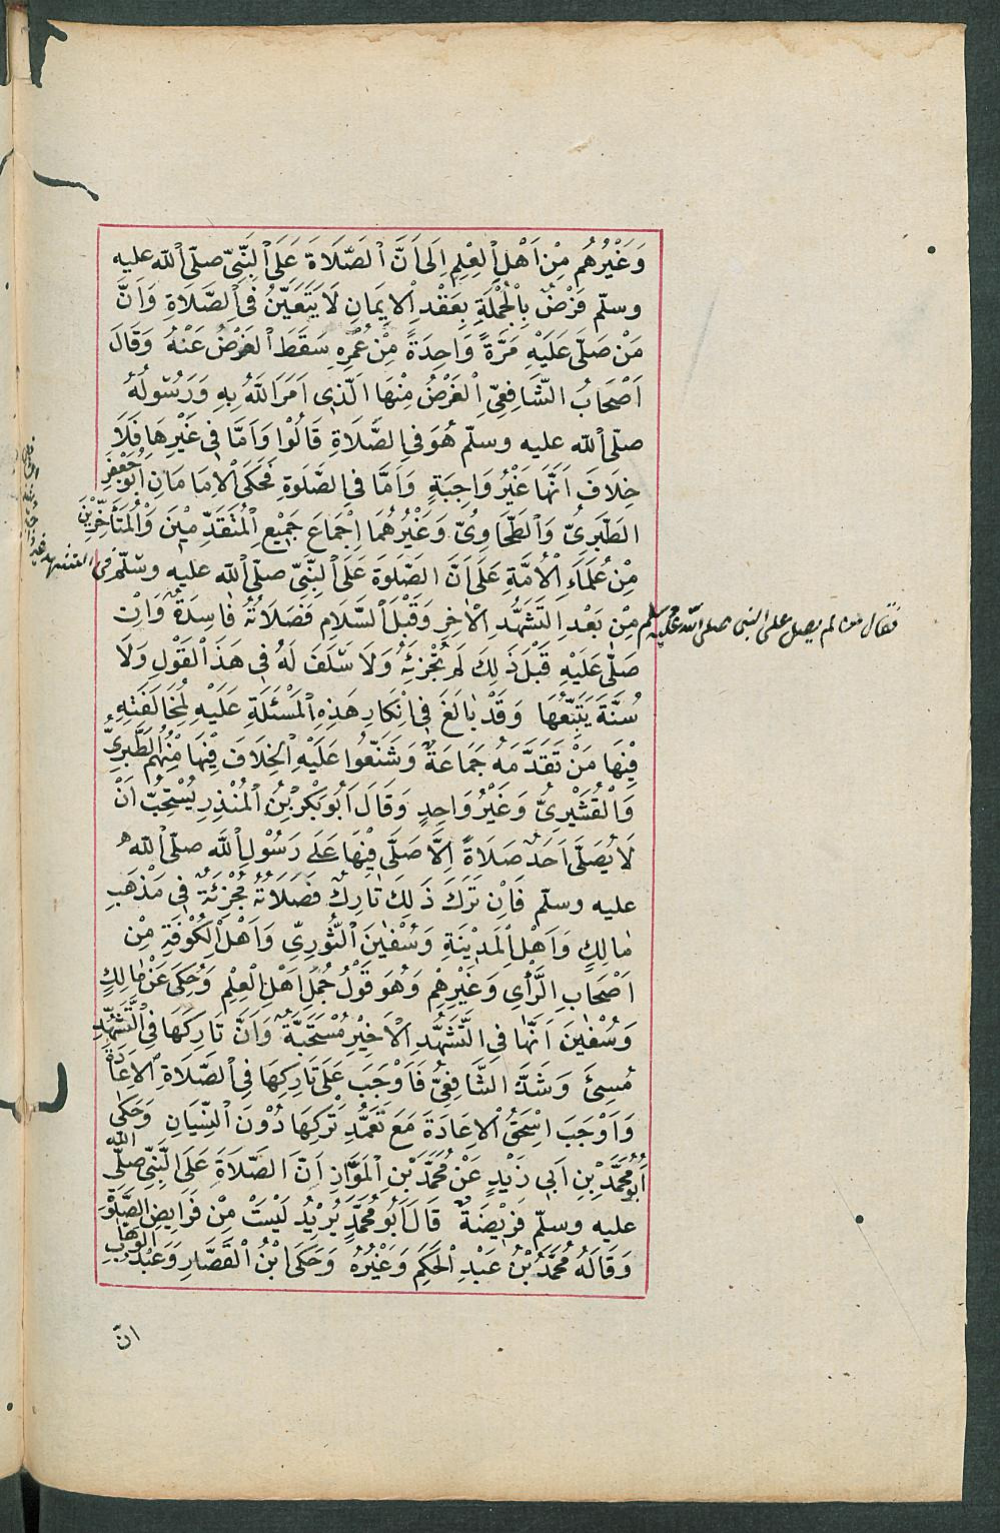 وَغَيْرُهُم مِنْ اَهْلِ الْعِلْمِ اِلَى اَنَّ الصَّلَاةَ عَلَى النَّبِىِّ صلّى الله عليه
وسلّم فَرْضٌ بِالْجُمْلَةِ بِعَقْدِ الْاِيمَانِ لَا يَتَعَيَّنُ فِى الصَّلَاةِ وَاَنَّ
مَنْ صَلّٰى عَلَيْهِ مَرَّةً وَاحِدَةً مِنْ عُمُرِهِ سَقَطَ الْفَرْضُ عَنْهُ وَقَالَ
اَصْحَابُ الشَّافِعِىِّ الْفَرْضُ مِنْهَا الَّذِى اَمَرَ اللّٰهُ بِهِ وَرَسُولُهُ
صلّى الله عليه وسلّم هُوَ فِى الصَّلَاةِ قَالُوْا وَاَمَّا فِى غَيْرِهَا فَلَا
خِلَافَ اَنَّهَا غَيْرُ وَاجِبَةٍ وَاَمَّا فِى الصَّلٰوةِ فَحَكَى الْاِمَامَانِ اَبُو جَعْفَرِ
الطَّبَرِىُّ وَالطَّحَاوِىُّ وَغَيْرُهُمَا اِجْمَاعَ جَمِيْعِ الْمُتَقَدِّمِيْنَ وَالْمُتَاَخِّرِيْنَ
مِنْ عُلَمَاءِ الْاُمَّةِ عَلَى اَنَّ الصَّلٰوةَ عَلَى النَّبِىِّ صلّى الله عليه وسلّم فى التشهد
فقال من لم يصل على النبى صلى الله عليه وسلم مِنْ بَعْدِ التَّشَهُّدِ الْاٰخِرِ وَقَبْلَ السَّلَامِ فَصَلَاتُهُ فَاسِدَةٌ وَاِنْ
صَلّٰى عَلَيْهِ قَبْلَ ذَلِكَ لَمْ تُجْزِئْهُ وَلَا سَلَفَ لَهُ فِى هَذَا الْقَوْلِ وَلَا
سُنَّةَ يَتَّبِعُهَا وَقَدْ بَالَغَ فِى اِنْكَارِ هَذِهِ الْمَسْئَلَةِ عَلَيْهِ لِمُخَالَفَتِهِ
فِيْهَا مَنْ تَقَدَّمَهُ جَمَاعَةٌ وَشَنَّعُوا عَلَيْهِ الْخِلَافَ فِيْهَا مِنْهُمُ الطَّبَرِىُّ
وَالْقُشَيْرِىُّ وَغَيْرُ وَاحِدٍ وَقَالَ اَبُو بَكْرِ بْنُ الْمُنْذِرِ يُسْتَحِبُّ اَنْ
لَا يُصَلِّىَ اَحَدٌ صَلَاةً اِلَّا صَلّٰى فِيْهَا عَلٰى رَسُوْلِ اللّٰهِ صلّى الله
عليه وسلّم فَاِنْ تَرَكَ ذَلِكَ تَارِكٌ فَصَلَاتُهُ مُجْزِئَةٌ فِى مَذْهَبِ
مٰالِكٍ وَاَهْلِ الْمَدِيْنَةِ وَسُفْيٰنَ الثَّوْرِىِّ وَاَهْلِ الْكُوْفَةِ مِنْ
اَصْحَابِ الرَّأْىِ وَغَيْرِهِمْ وَهُوَ قَوْلُ جُمَلِ اَهْلِ الْعِلْمِ وَحُكِىَ عَنْ مَالِكٍ
وَسُفْيٰنَ اَنَّهَا فِى التَّشَهُّدِ الْاَخِيْرِ مُسْتَحَبَّةٌ وَاَنَّ تَارِكَهَا فِى التَّشَهُّدِ
مُسِئٌ وَشَذَّ الشَّافِعِىُّ فَاَوْجَبَ عَلَى تَارِكِهَا فِى الصَّلَاةِ الْاِعَادَةَ
وَاَوْجَبَ اِسْحٰقُ الْاِعَادَةَ مَعَ تَعَمُّدِ تَرْكِهَا دُوْنَ النِّسْيَانِ وَحَكٰى
اَبُو مُحَمَّدِ بْنِ اَبِى زَيْدٍ عَنْ مُحَمَّدِ بْنِ الْمَوَّازِ اَنَّ الصَّلَاةَ عَلَى النَّبِىِّ صَلَّى الله
عليه وسلّم فَرِيْضَةٌ قَالَ اَبُو مُحَمَّدٍ يُرِيْدُ لَيْسَتْ مِنْ فَرَايِضِ الصَّلٰوةِ
وَقَالَهُ مُحَمَّدُ بْنُ عَبْدِ الْحَكَمِ وَغَيْرُهُ وَحَكَى ابْنُ الْقَصَّارِ وَعَبْدُ الْوَهَّابِ
انّ